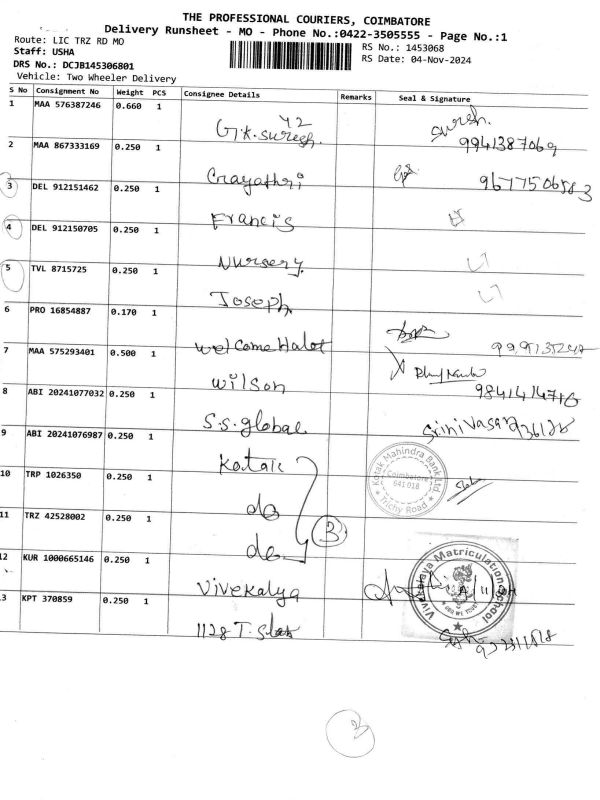 THE PROFESSIONAL COURIERS, COIMBATORE
Delivery Runsheet - MO - Phone No.:0422-3505555 - Page No.:1
Route: LIC TRZ RD MO
RS No.: 1453068
Staff: USHA
RS Date: 04-Nov-2024
DRS No.: DCJB145306801
Vehicle: Two Wheeler Delivery
S No Consignment No Weight PCS Consignee Details Remarks Seal & Signature
1 MAA 576387246 0.660 1
G.K. Suresh. Suresh.
9941387069
2 MAA 867333169 0.250 1
Gayathri
3 DEL 912151462 0.250 1
Francis
4 DEL 912150705 0.250 1
Nursery
5 TVL 8715725 0.250 1
Joseph
6 PRO 16854887 0.170 1
Welcome
7 MAA 575293401 0.500 1
Wilson
8 ABI 20241077032 0.250 1
S.S. global Srinivasan
9 ABI 20241076987 0.250 1
Kotak
Kotak Mahindra Bank Ltd
Coimbatore
641 018
Trichy Road
10 TRP 1026350 0.250 1
do
11 TRZ 42528002 0.250 1
do
3
12 KUR 1000665146 0.250 1
Vivekalya
Vivekalaya Matriculation School
13 KPT 370859 0.250 1
1128 T.
3